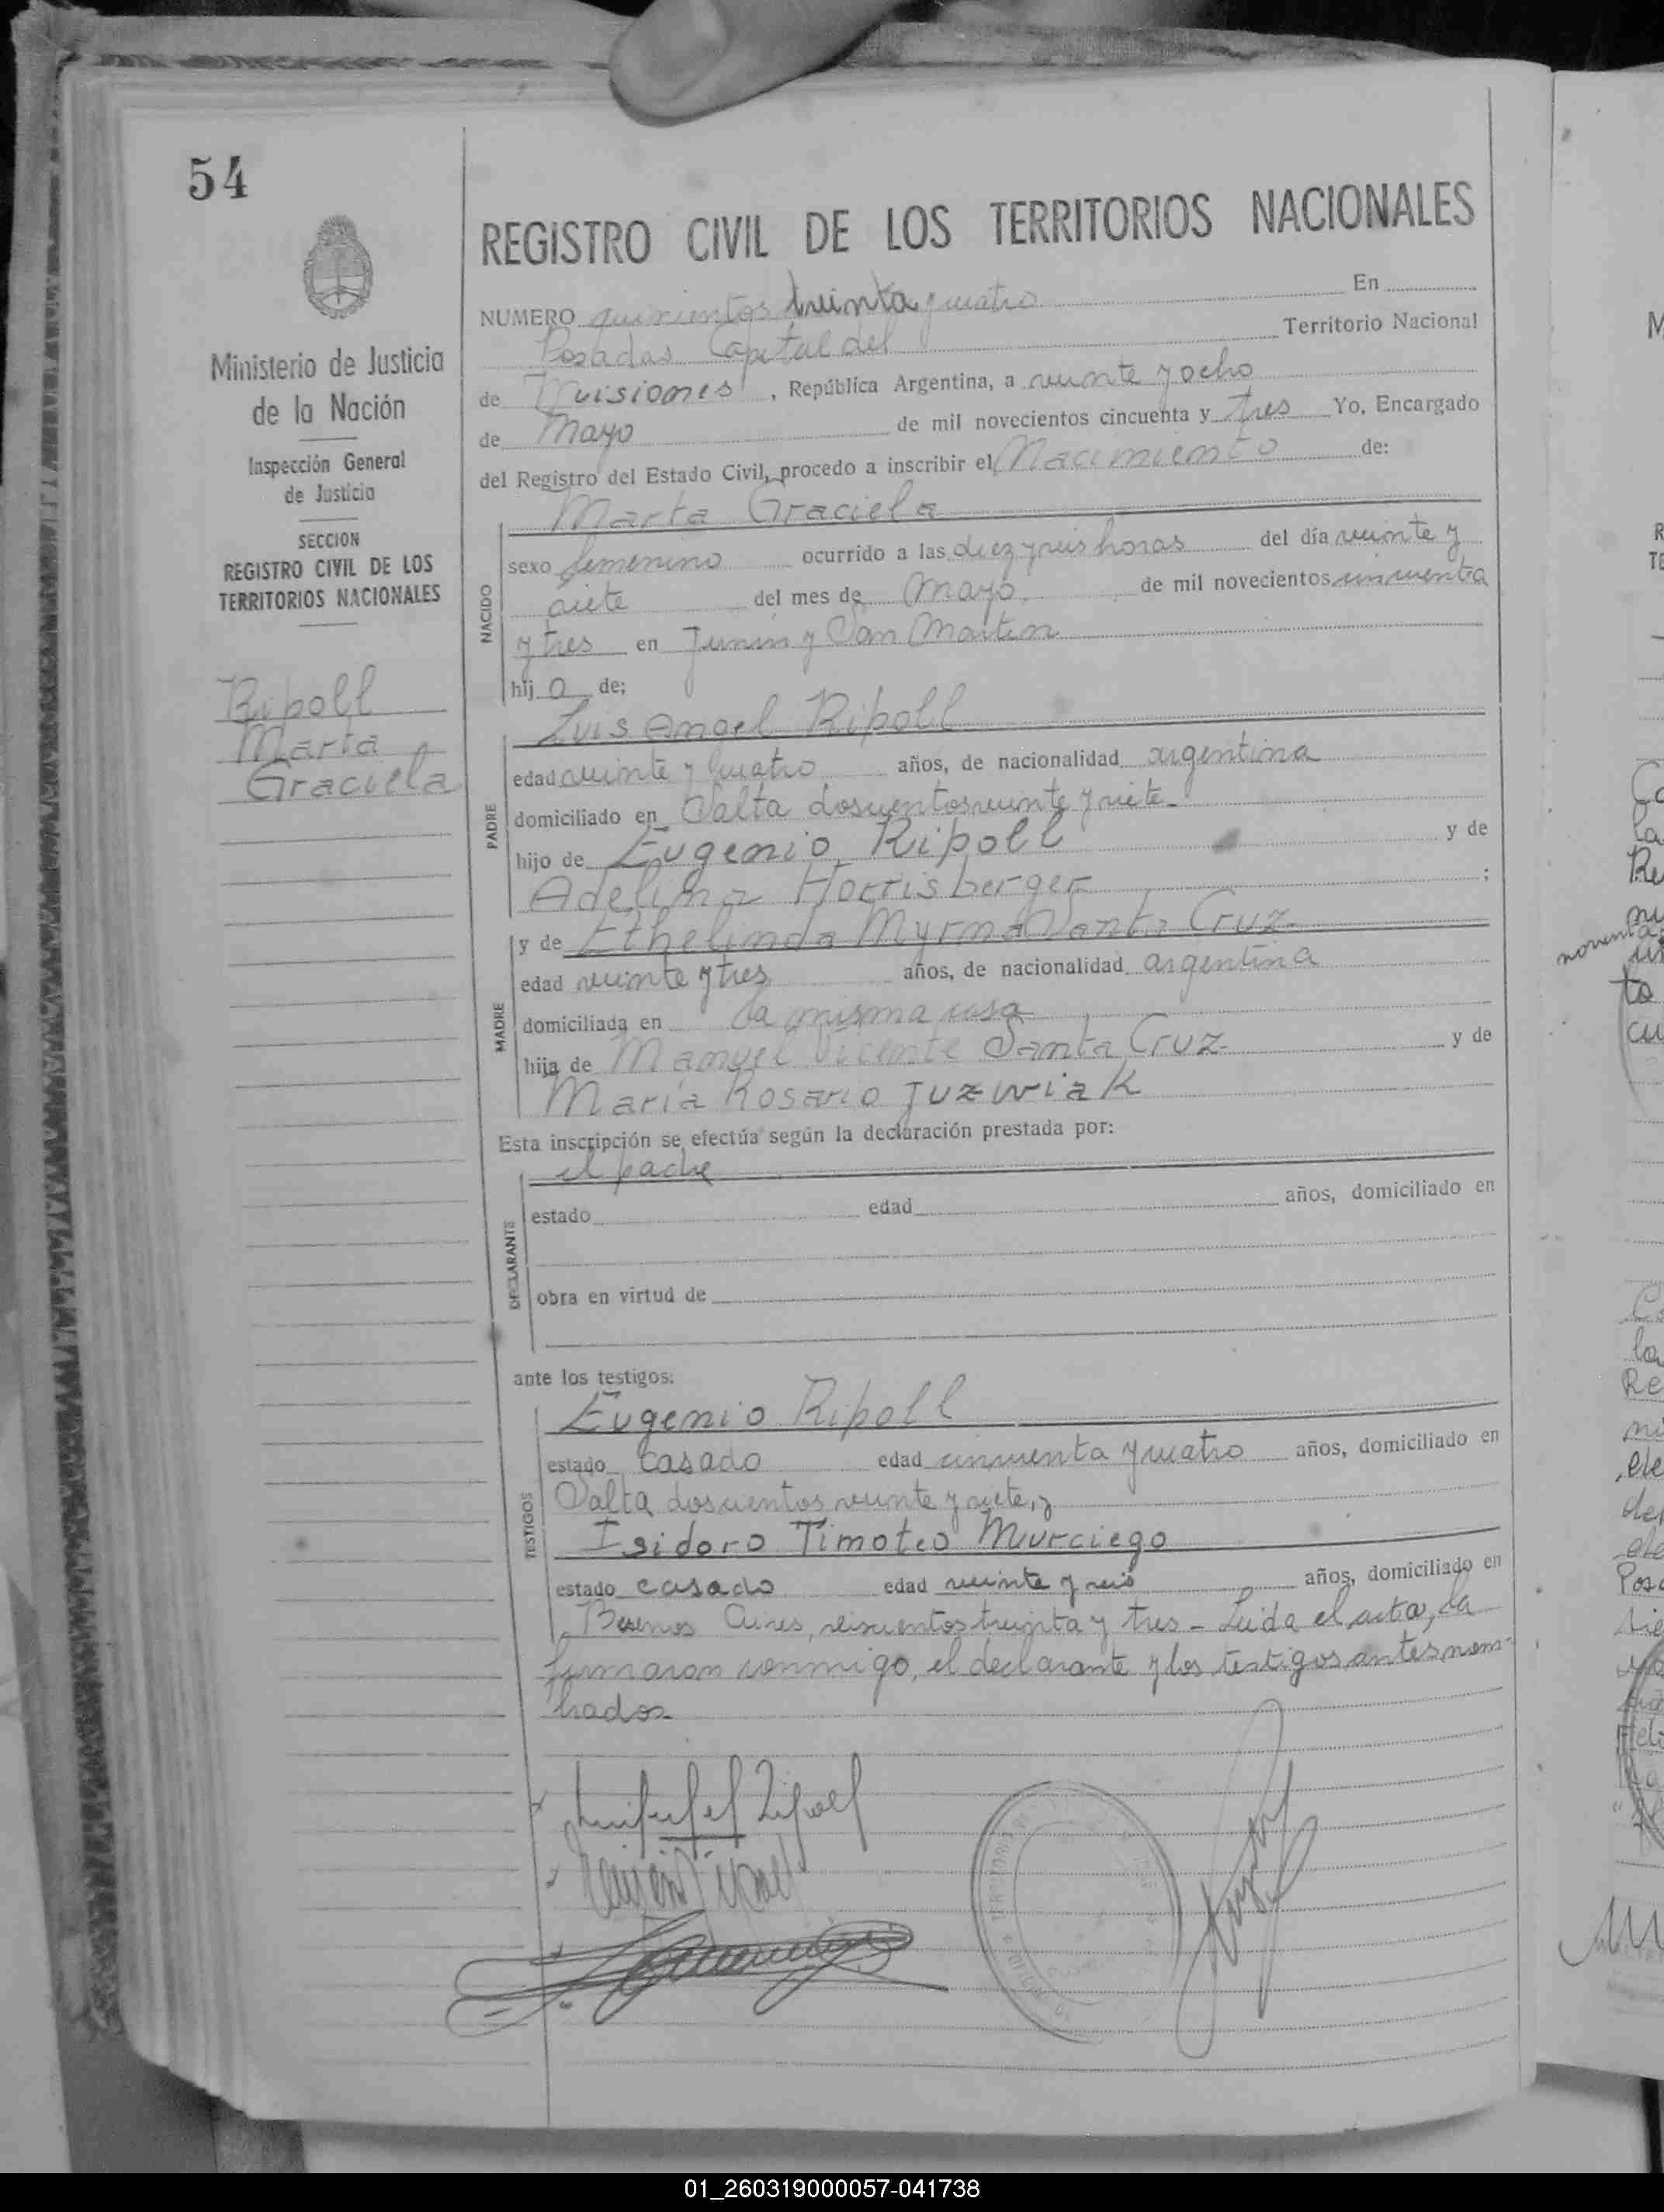 54
REGISTRO CIVIL DE LOS TERRITORIOS NACIONALES
Ministerio de Justicia
de la Nación
Inspección General
de Justicia
SECCION
REGISTRO CIVIL DE LOS
TERRITORIOS NACIONALES
Ripoll
Marta
Graciela
NUMERO quinientos treinta y cuatro En
Posadas Capital del Territorio Nacional
de Misiones, República Argentina, a veinte y ocho
de Mayo de mil novecientos cincuenta y tres Yo, Encargado
del Registro del Estado Civil, procedo a inscribir el Nacimiento de:
NACIDO
Marta Graciela
sexo femenino ocurrido a las diez y seis horas del día veinte y
siete del mes de Mayo de mil novecientos cincuenta
y tres en Junín y San Martin
hij a de;
PADRE
Luis Angel Ripoll
edad veinte y cuatro años, de nacionalidad argentina
domiciliado en Salta doscientos veinte y siete-
hijo de Eugenio Ripoll y de
Adelina Horrisberger ;
MADRE
y de Ethelinda Myrna Santa Cruz
edad veinte y tres años, de nacionalidad argentina
domiciliada en la misma casa
hija de Manuel Vicente Santa Cruz y de
María Rosario Juzwiak
Esta inscripción se efectúa según la declaración prestada por:
DECLARANTE
el padre
estado edad años, domiciliado en
obra en virtud de
ante los testigos:
TESTIGOS
Eugenio Ripoll
estado casado edad cincuenta y cuatro años, domiciliado en
Salta doscientos veinte y siete, y
Isidoro Timoteo Murciego
estado casado edad veinte y seis años, domiciliado en
Buenos Aires, seiscientos treinta y tres - Leida el acta, la
firmaron conmigo, el declarante y los testigos antes nom-
brados
01_260319000057-041738